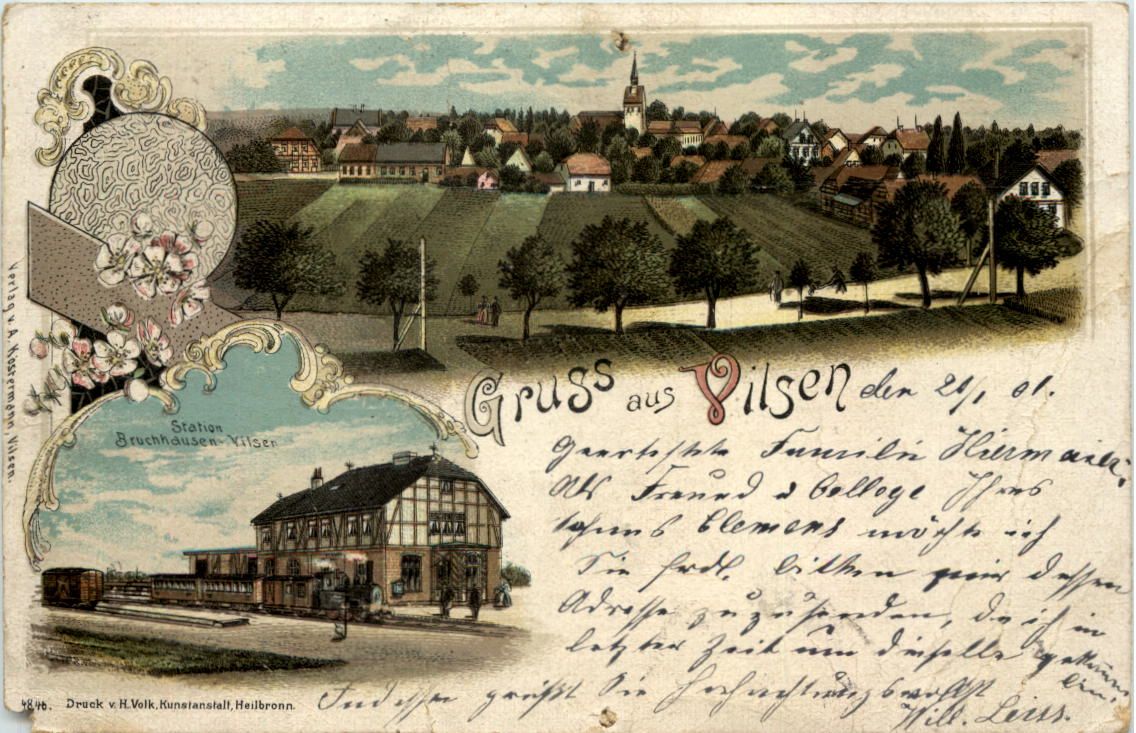 Gruss aus Vilsen den 20/1 01.
Station
Bruchhausen-Vilsen
Verlag v. A. Kostermann, Vilsen.
Geerteste Familie
Als Freund & College Ihres
Sohnes Clemens möchte ich
Sie frdl. bitten mir dessen
Adresse zuzusenden, da ich in
letzter Zeit um dieselbe gekommen
bin.
Indessen grüßt Sie hochachtungsvollst
Will. Leiss.
4846. Druck v. H. Volk, Kunstanstalt, Heilbronn.